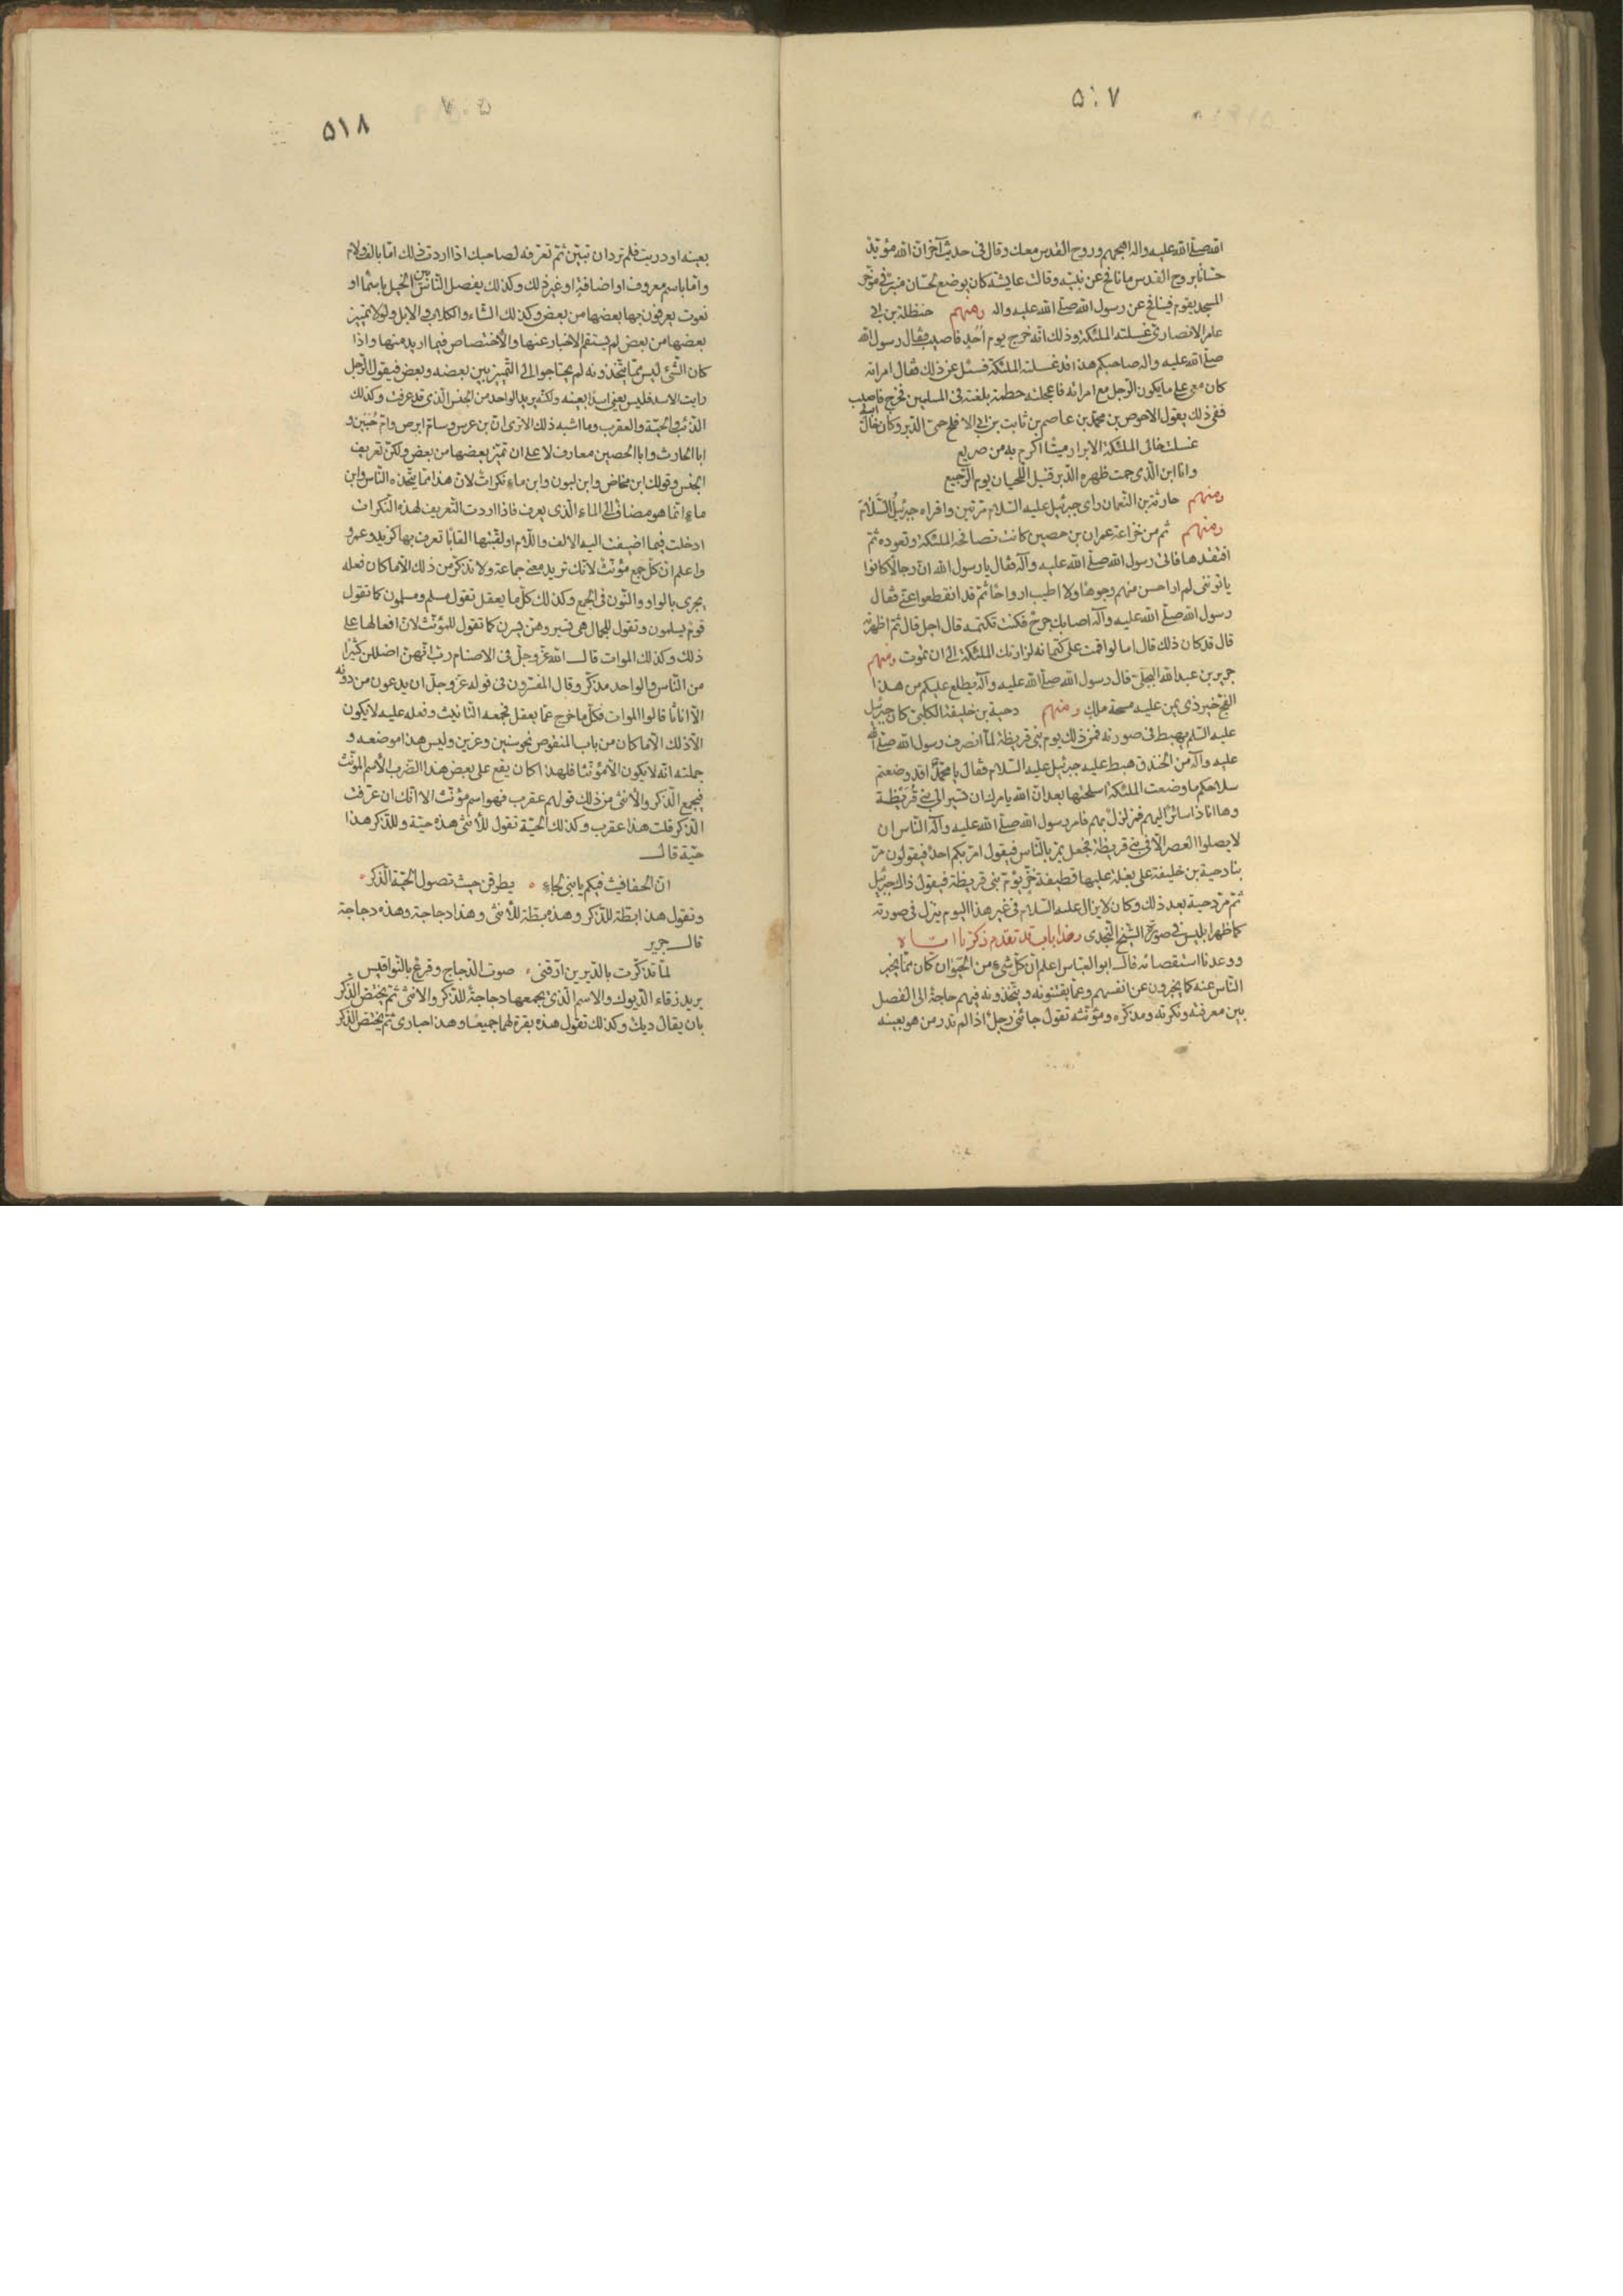 ٥٠٧
الله صلى الله عليه واله اهجهم وروح القدس معك وقال فى حديث آخر ان الله مؤيد
حسانا بروح القدس ما نافح عن نبيه وقالت عايشة كان يوضع لحسان منبر فى مؤخر
المسجد يقوم فينافح عن رسول الله صلى الله عليه واله ومنهم حنظلة بن ابى
عامر الانصارى غسلته الملئكة وذلك انه خرج يوم اُحُد فاصيب فقال رسول الله
صلى الله عليه واله صاحبكم هذا قد غسلته الملئكة فسئل عن ذلك فقال امراته
كان معى على ما يكون الرجل مع امراته فاعجلته حطمة بلغته فى المسلمين فخرج فاصيب
ففى ذلك يقول الاحوص بن محمد بن عاصم بن ثابت بن ابى الافلح حمى الدبر وكان خال ابيه
غسلت خالى الملئكة الابرار ميتا اكرم به من صريع
وانا ابن الذى حمت ظهره الدبر قتيل اللحيان يوم الرجيع
ومنهم حارثة بن النعمان راى جبرئيل عليه السلام مرتين واقراه جبرئيل السلام
ومنهم ثم من خزاعة عمران بن حصين كانت تصافحه الملئكة وتعوده ثم
افتقدها فاتى رسول الله صلى الله عليه وآله فقال يا رسول الله ان رجالا كانوا
ياتوننى لم ار احسن منهم وجوها ولا اطيب ارواحا ثم قد انقطعوا عنى فقال
رسول الله صلى الله عليه وآله اصابك جرح فكنت تكتمه قال اجل قال ثم اظهرته
قال قد كان ذلك قال اما لو اقمت على كتمانه لزارتك الملئكة الى ان تموت ومنهم
جرير بن عبد الله البجلى قال رسول الله صلى الله عليه وآله يطلع عليكم من هذا
الفج خير ذى يمن عليه مسحة ملك ومنهم دحية بن خليفة الكلبى كان جبرئيل
عليه السلم يهبط فى صورته فمن ذلك يوم بنى قريظة لما انصرف رسول الله صلى الله
عليه وآله من الخندق هبط عليه جبرئيل عليه السلام فقال يا محمد اقد وضعتم
سلاحكم ما وضعت الملئكة اسلحتها بعد ان الله يامرك ان تسير الى بنى قُرَيْظَة
وها انا ذا سائر اليهم فمزلزل بهم فامر رسول الله صلى الله عليه وآله الناس ان
لا يصلوا العصر الا فى بنى قريظة فجعل يمر بالناس فيقول امر بكم احد فيقولون مر
بنا دحية بن خليفة على بغلة عليها قطيفة خز يؤم بنى قريظة فيقول ذاك جبرئيل
ثم مر دحية بعد ذلك وكان لا يزال عليه السلام فى غير هذا اليوم ينزل فى صورته
كما ظهر ابليس فى صورة الشيخ النجدى وهذا باب قد تقدم ذكرنا اياه
ووعدنا استقصائه قال ابو العباس اعلم ان كل شىء من الحيوان كان مما يخبر
الناس عنه كما يخبرون عن انفسهم وعما يقتنونه ويتخذونه فبهم حاجة الى الفصل
بين معرفته ونكرته ومذكره ومؤنثه تقول جائنى رجل اذا لم تدر من هو بعينه
٥١٨
بعينه او دريت فلم ترد ان تبين ثم تعرفه لصاحبك اذا اردت ذلك اما بالف ولام
واما باسم معروف او اضافة او غير ذلك وكذلك يفصل الناس بين الخيل باسما او
نعوت يعرفون بها بعضها من بعض وكذلك الشاء والكلاب والابل ولولا تمييز
بعضها من بعض لم يستقم الاخبار عنها والاختصاص فيما اريد منها واذا
كان الشئ ليس مما يتخذونه لم يحتاجوا الى التمييز بين بعضه وبعض فيقول الرجل
رايت الاسد فليس يعنى اسدا بعينه ولكنه يريد الواحد من الجنس الذى قد عرفت وكذلك
الذئب والحية والعقرب وما اشبه ذلك الا ترى ان بن عرس وسام ابرص وام حُبَين و
ابا الحارث وابا الحصين معارف لا على ان تميز بعضها من بعض ولكن تعريف
الجنس وقولك ابن مخاض وابن لبون وابن ماء نكرات لان هذا مما يتخذه الناس وابن
ماء انما هو مضاف الى الماء الذى يعرف فاذا اردت التعريف لهذه النكرات
ادخلت فيما اضيفت اليه الالف واللام او لقبتها القابا تعرف بها كزيد وعمرو
واعلم ان كل جمع مؤنث لانك تريد معنى جماعة ولا تذكر من ذلك الا ما كان فعله
يجرى بالواو والنون فى الجمع وكذلك كل ما يعقل تقول مسلم ومسلمون كما تقول
قوم يسلمون وتقول للجمال هى تسير وهن يسرن كما تقول للمؤنث لان افعالها على
ذلك وكذلك الموات قال الله عز وجل فى الاصنام رب انهن اضللن كثيرا
من الناس والواحد مذكر وقال المفسرون فى قوله عز وجل ان يدعون من دونه
الا اناثا قالوا الموات فكل ما خرج عما يعقل فجمعه التانيث وفعله عليه لا يكون
الا ذلك الا ما كان من باب المنقوص نحو سنين وعزين وليس هذا موضعه و
جملته انه لا يكون الا مؤنثا فلهذا كان يقع على بعض هذا الضرب الاسم المونث
فيجمع الذكر والانثى من ذلك قولهم عقرب فهو اسم مؤنث الا انك ان عرفت
الذكر قلت هذا عقرب وكذلك الحية تقول للانثى هذه حية وللذكر هذا
حية قال
ان الحفافيث فيكم يا بنى لجاء يطرقن حيث تصول الحية الذكر
وتقول هذا بطة للذكر وهذه بطة للانثى وهذا دجاجة وهذه دجاجة
قال جرير
لما تذكرت بالديرين ارقنى صوت الدجاج وقرع بالنواقيس
يريد زقاء الديوك والاسم الذى يجمعها دجاجة للذكر والانثى ثم يختص الذكر
بان يقال ديك وكذلك تقول هذه بقرة لهما جميعا وهذا حبارى ثم يختص الذكر